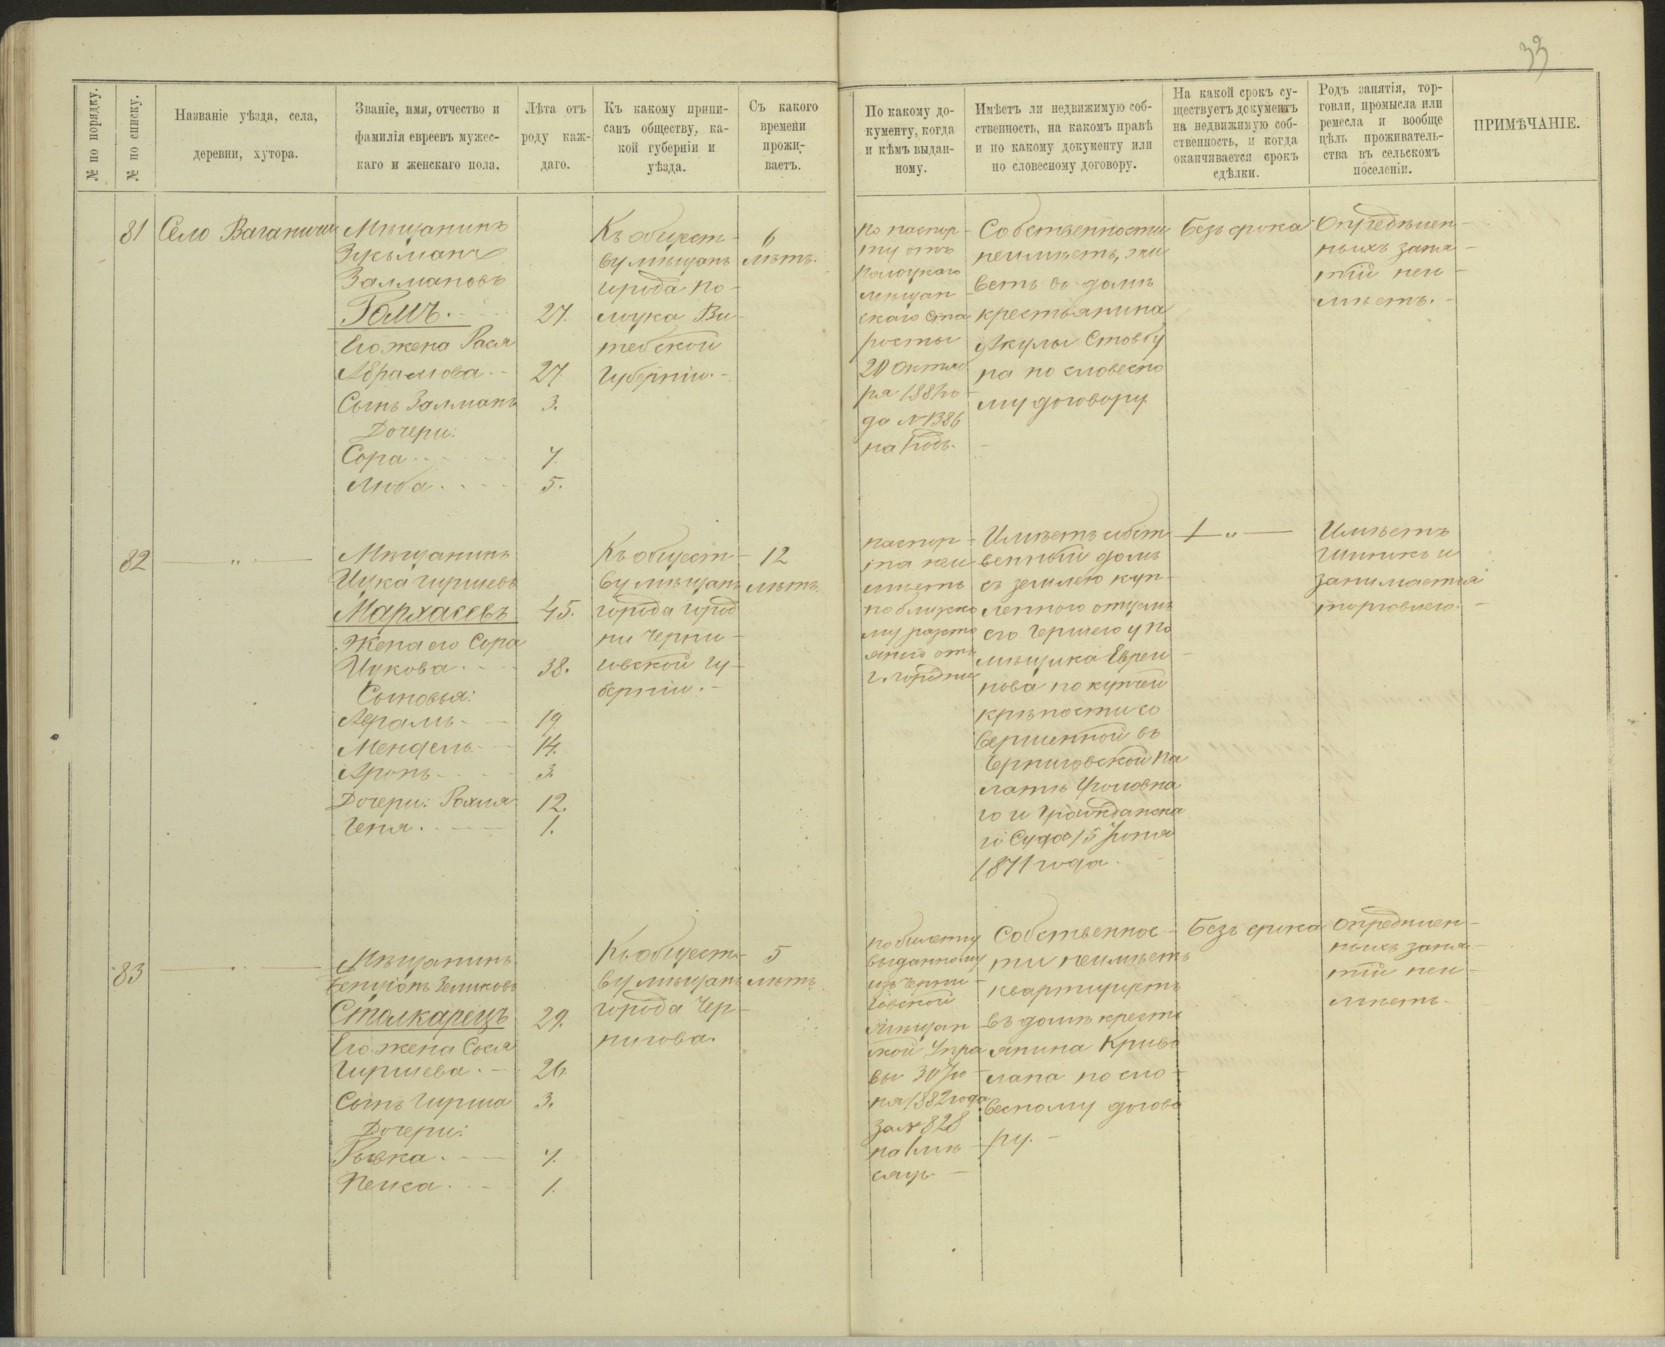 33
№ по порядку.
№ по списку.
Названіе уѣзда, села,
деревни, хутора.
Званіе, имя, отчество и
фамилія евреевъ мужес-
каго и женскаго пола.
Лѣта отъ
роду каж-
даго.
Къ какому припи-
санъ обществу, ка-
кой губерніи и
уѣзда.
Съ какого
времени
прожи-
ваетъ.
По какому до-
кументу, когда
и кѣмъ выдан-
ному.
Имѣетъ ли недвижимую соб-
ственность, на какомъ правѣ
и по какому документу или
по словесному договору.
На какой срокъ су-
ществуетъ документъ
на недвижимую соб-
ственность, и когда
оканчивается срокъ
сдѣлки.
Родъ занятія, тор-
говли, промысла или
ремесла и вообще
цѣль проживатель-
ства въ сельскомъ
поселеніи.
ПРИМѢЧАНІЕ.
81
Село Ваганичи
Мѣщанинъ
Залмановъ
Гомъ.
27.
Его жена Рася
Абрамова. 27
Сынъ Залманъ 3.
Дочери:
Сора 7.
Люба 5.
Къ общест-
ву мѣщанъ
города По-
лоцка Ви-
тебской
Губерніи.
6
лѣтъ.
по паспор-
ту отъ
Полоцкаго
мѣщан-
скаго ста
росты
20 Октяб
ря 188 го
да №1386
на годъ.
Собственности
неимѣетъ, жи
ветъ въ домѣ
крестьянина
Акулы Стовбу
на по словесно
му договору
Безъ срока
Опредѣлен-
ныхъ заня-
тій неи-
мѣетъ.
82
"
Мѣщанинъ
Ицка Гиршевъ
Мархасевъ 45.
Жена его Сора
Ицкова. 38.
Сыновья:
Абрамъ 19
Мендель 14.
Аронъ 3.
Дочери: Рохля 12.
Геня. 1.
Къ общест-
ву мѣщанъ
города Город
ни Черни-
говской гу-
берніи.
12
лѣтъ.
паспор-
та неи
мѣетъ
по близко
му разсто
янію отъ
г. Городни
Имѣетъ собст
венный домъ
съ землею куп-
леннаго отцомъ
его Гершею у по
мѣщика Евреи
нова по купчей
крѣпости со
вершенной въ
Черниговской Па
латѣ Уголовна
го и Гражданска
го Суда 15 Іюня
1871 года.
"
Имѣетъ
шинокъ и
занимается
торговлею.
83
"
Мѣщанинъ
Бенціонъ Зеликовъ
Столкарецъ 29.
Его жена Сося
Гиршева. 26
Сынъ Гирша 3.
Дочери:
Рывка. 7.
Песка. 1.
Къ общест-
ву мѣщанъ
города Чер-
нигова.
5
лѣтъ.
по билету
выданному
изъ Черни-
говской
Мѣщан-
ской Упра
вы 30 Ію-
ня 1882 года
за № 828
на 1 мѣ-
сяцъ.
Собственнос-
ти неимѣетъ
квартируетъ
въ домѣ крестъ
янина Криво
лапа по сло-
весному догово
ру.
Безъ срока
Опредѣлен-
ныхъ заня-
тій неи-
мѣетъ.